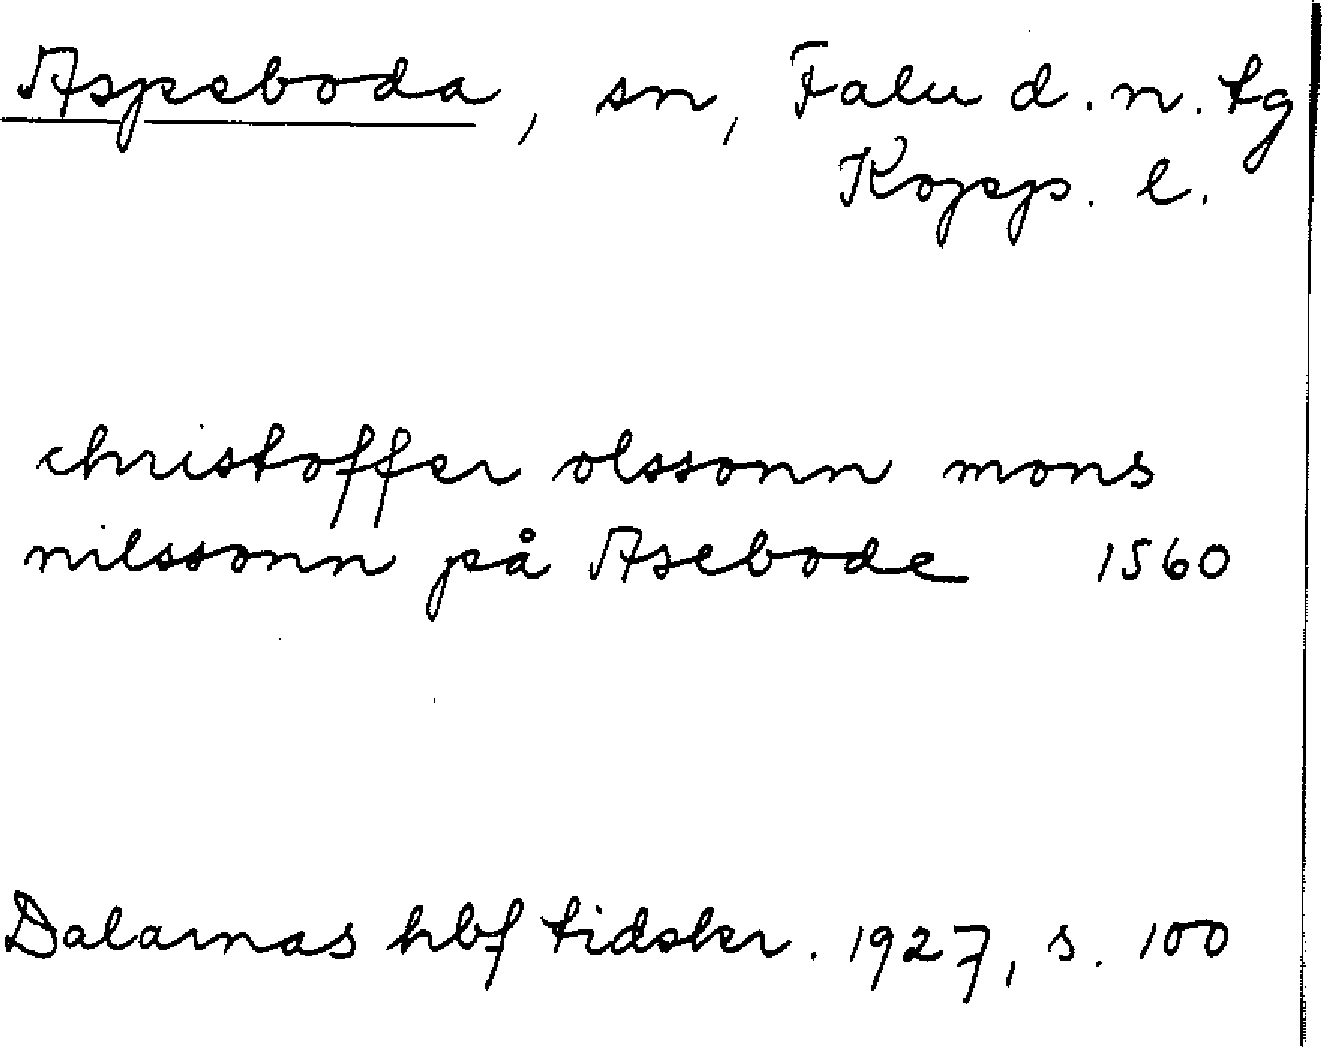 Aspeboda, sn, Falu d. n. tg
Kopp. l.
christoffer olssonn mons
nilssonn på Asebode 1560
Dalarnas hbf tidskr. 1927, s. 100